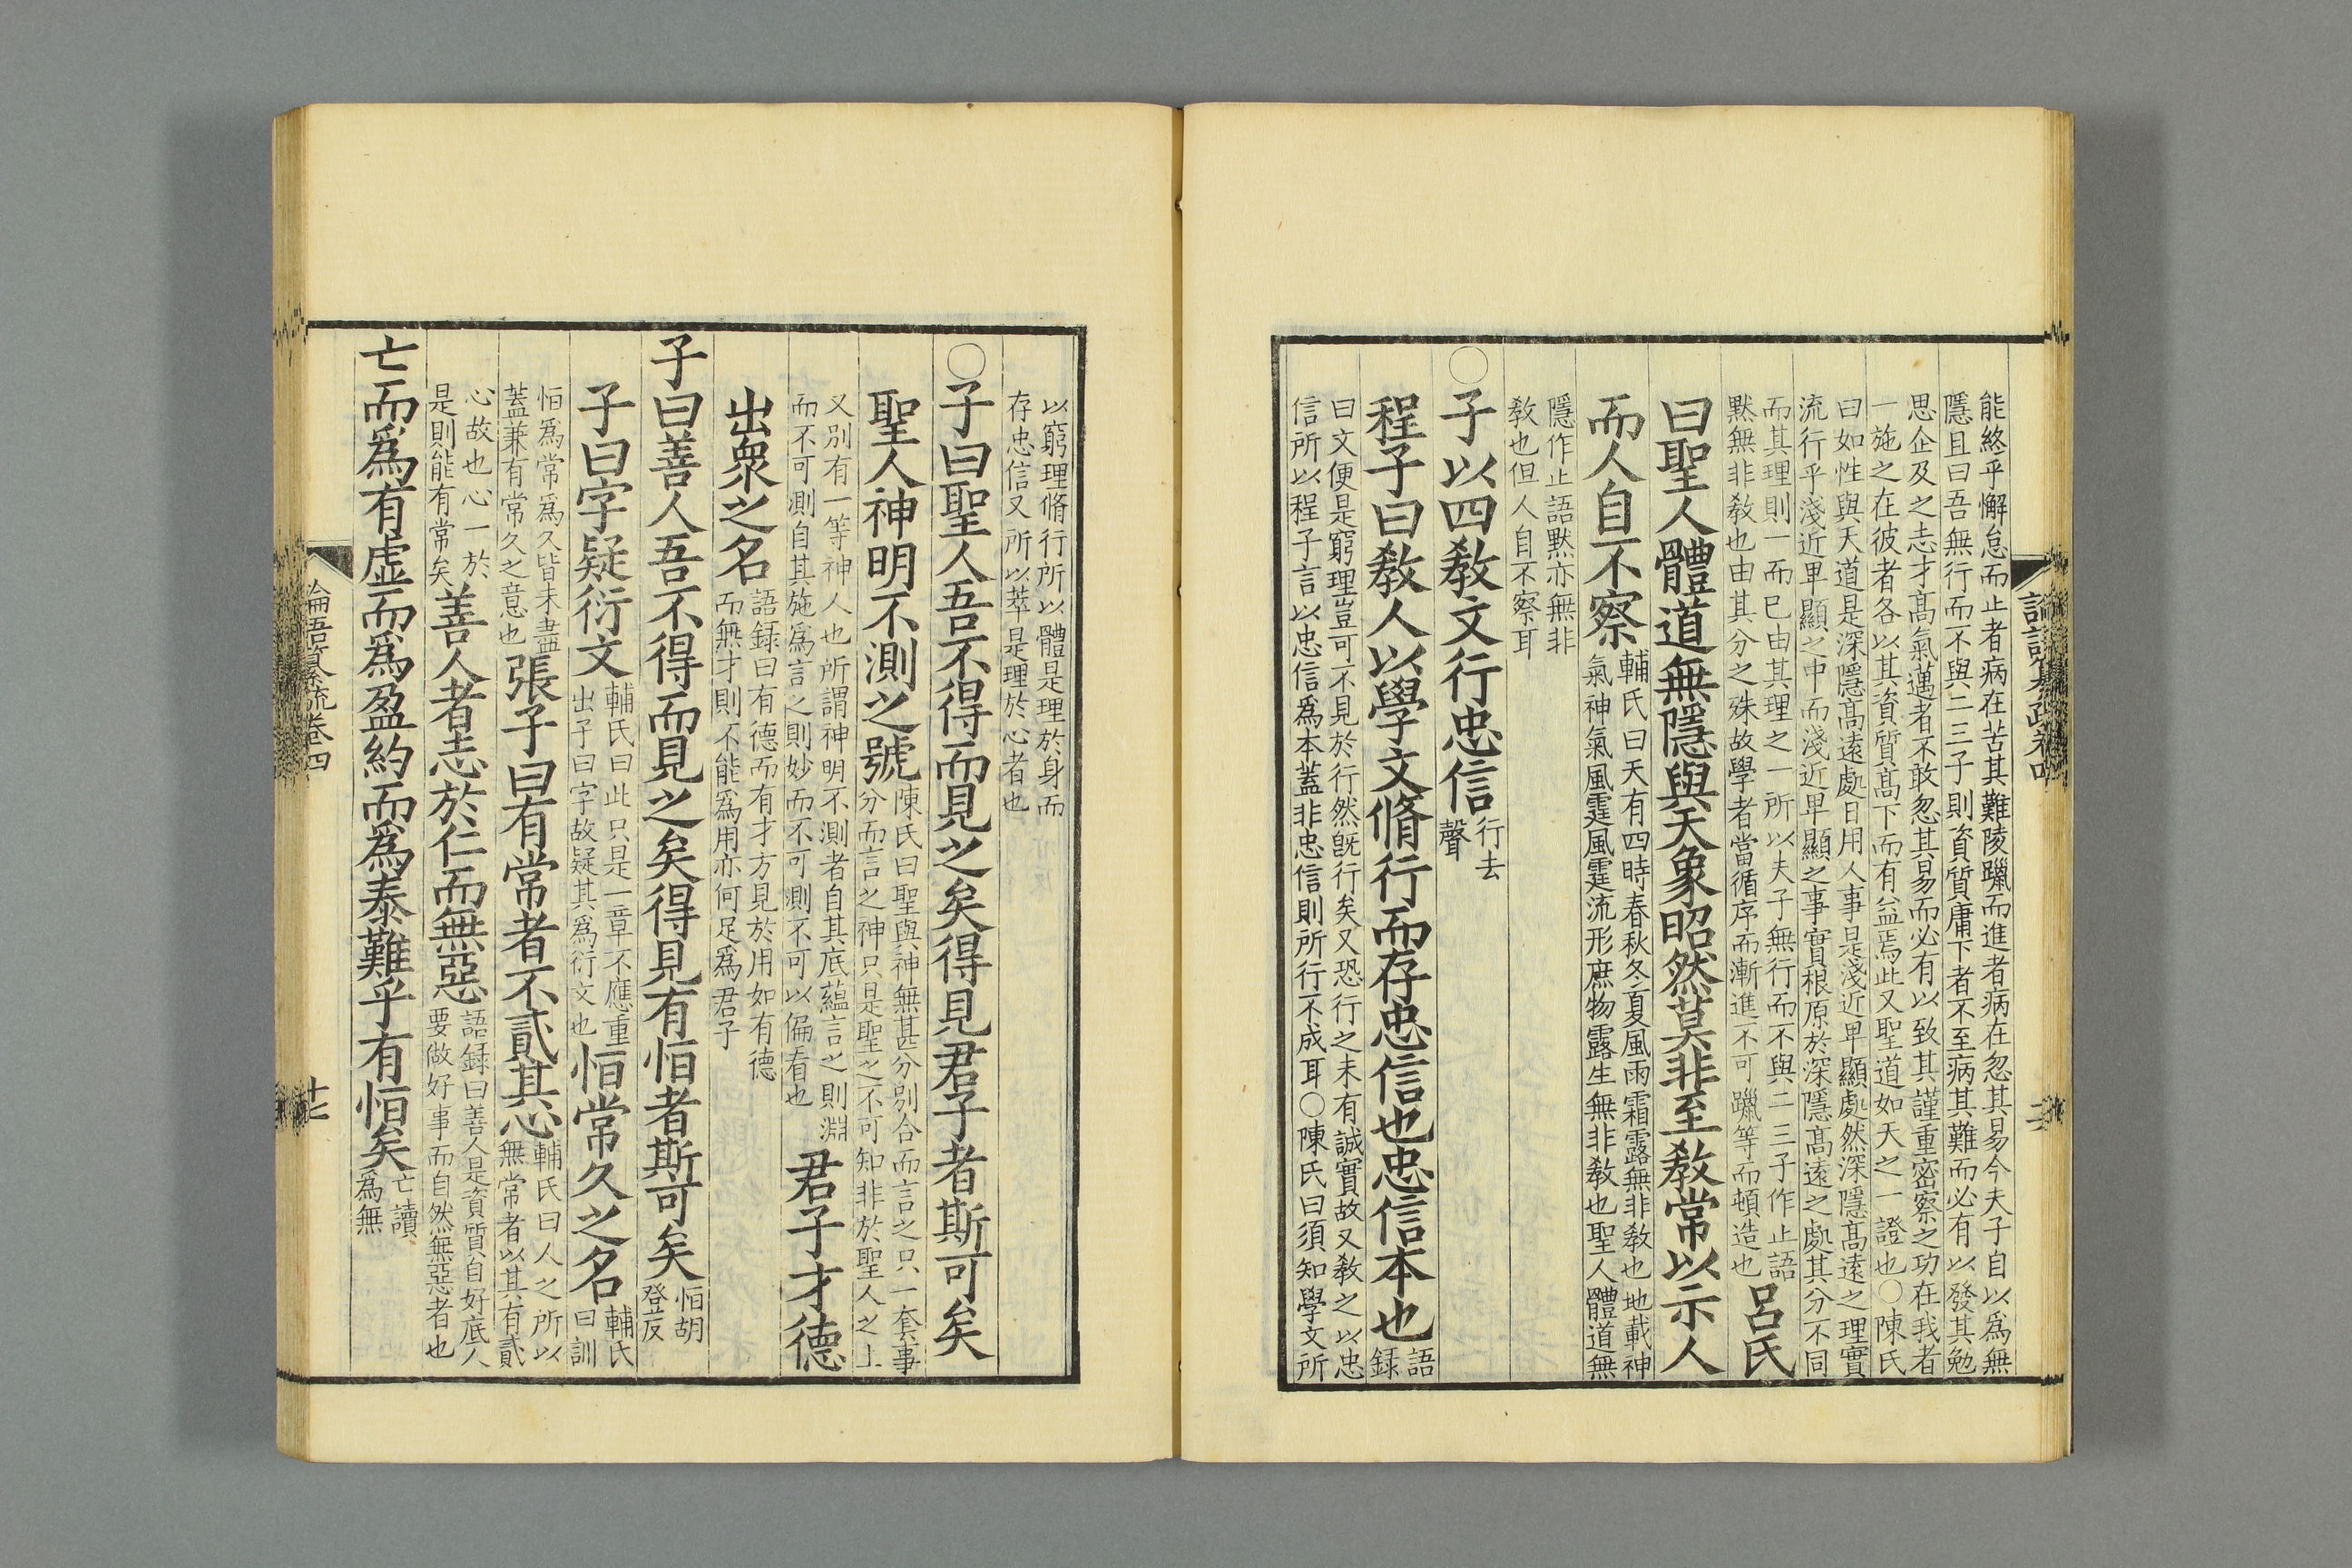 能終乎懈怠而止者病在苦其難陵躐而進者病在忽其易今夫子自以爲無
隱且曰吾無行而不與二三子則資質庸下者不至病其難而必有以發其勉
思企及之志才髙氣邁者不敢忽其易而必有以致其謹重密察之功在我者
一施之在彼者各以其資質髙下而有益焉此又聖道如天之一證也○陳氏
曰如性與天道是深隱髙遠處日用人事是淺近卑顯處然深隱髙遠之理實
流行乎淺近卑顯之中而淺近卑顯之事實根原於深隱髙遠之處其分不同
而其理則一而已由其理之一所以夫子無行而不與二三子作止語
黙無非敎也由其分之殊故學者當循序而漸進不可躐等而頓造也
呂氏
曰聖人體道無隱與天象昭然莫非至敎常以示人
而人自不察
輔氏曰天有四時春秋冬夏風雨霜露無非敎也地載神
氣神氣風霆風霆流形庶物露生無非敎也聖人體道無
隱作止語黙亦無非
敎也但人自不察耳
○子以四敎文行忠信
行去
聲
程子曰敎人以學文脩行而存忠信也忠信本也
語
録
曰文便是窮理豈可不見於行然旣行矣又恐行之未有誠實故又敎之以忠
信所以程子言以忠信爲本蓋非忠信則所行不成耳○陳氏曰須知學文所
以窮理脩行所以體是理於身而
存忠信又所以萃是理於心者也
○子曰聖人吾不得而見之矣得見君子者斯可矣
聖人神明不測之號
陳氏曰聖與神無甚分別合而言之只一套事
分而言之神只是聖之不可知非於聖人之上
又別有一等神人也所謂神明不測者自其底蘊言之則淵
而不可測自其施爲言之則妙而不可測不可以偏看也
君子才德
出衆之名
語録曰有德而有才方見於用如有德
而無才則不能爲用亦何足爲君子
子曰善人吾不得而見之矣得見有恒者斯可矣
恒胡
登反
子曰字疑衍文
輔氏曰此只是一章不應重
出子曰字故疑其爲衍文也
恒常久之名
輔氏
曰訓
恒爲常爲久皆未盡
蓋兼有常久之意也
張子曰有常者不貳其心
輔氏曰人之所以
無常者以其有貳
心故也心一於
是則能有常矣
善人者志於仁而無惡
語録曰善人是資質自好底人
要做好事而自然無惡者也
亡而爲有虛而爲盈約而爲泰難乎有恒矣
亡讀
爲無
論語纂疏卷四